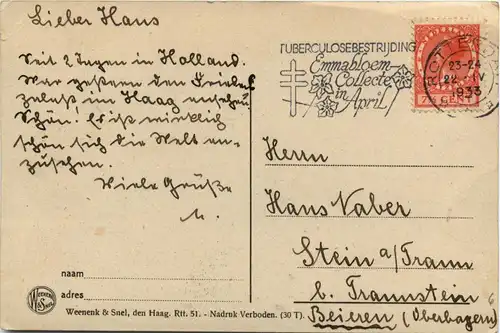 Lieber Hans
Seit 2 Tagen in Holland.
War gestern den
im Haag ansehen
Schön! Es ist wirklich
schön sich die Welt an-
zusehen.
Viele Grüße
TUBERCULOSEBESTRIJDING
Emmabloem
Collecte
in April
23-24
22 IV
1933
7½ CENT
Herrn
Hans Naber
Stein a/Traun
b. Traunstein
Beieren (Oberbayern)
naam
adres
WEENENK & SNEL
Weenenk & Snel, den Haag. Rtt. 51. - Nadruk Verboden. (30 T).